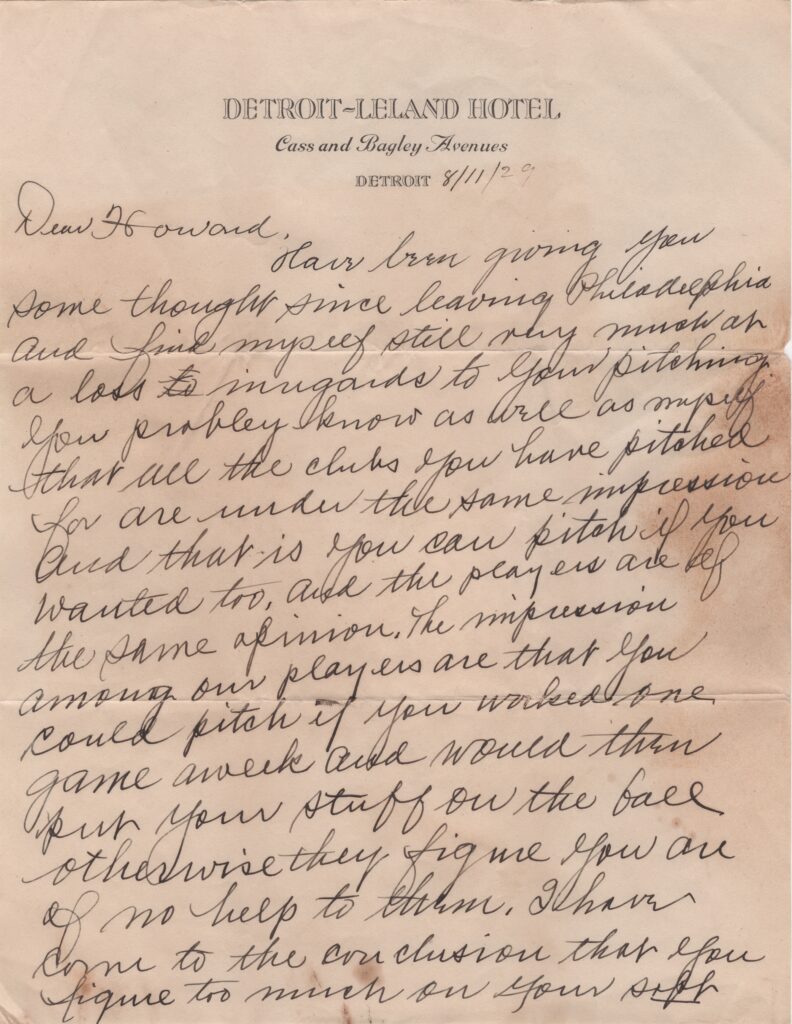 DETROIT-LELAND HOTEL
Cass and Bagley Avenues
DETROIT 8/11/29
Dear Howard.
Have been giving you
some thought since leaving Philadelphia
and find myself still very much at
a loss to inregards to your pitching.
You probley know as well as myself
that all the clubs you have pitched
for are under the same impression
and that is you can pitch if you
wanted too. and the players are of
the same opinion. The impression
among our players are that you
could pitch if you worked one
game aweek and would then
put your stuff on the ball
otherwise they figure you are
of no help to them. I have
come to the conclusion that you
figure too much on your soft